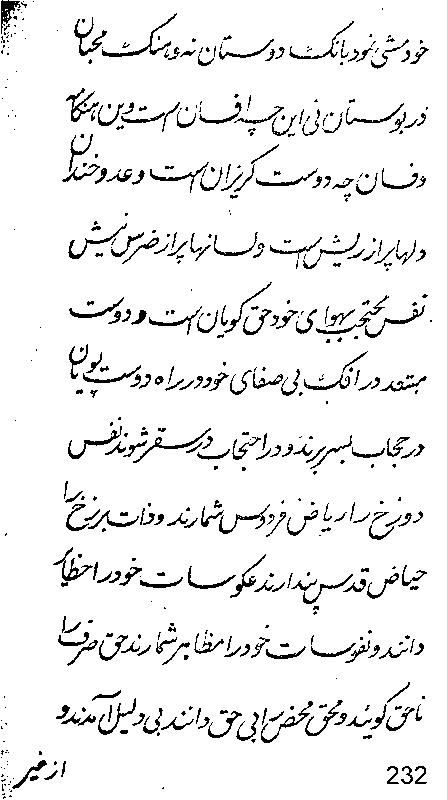 خودمشی نمود بانک دوستان نه و هنک محبان
در بوستان نی این چه افسان است وین هنگامه
و فسان چه دوست کریزان است و عدو خندان
دلها پر از ریش است و لسانها پر از ضرس نیش
نفس محتجب بهوای خود حق کویان است و دوست
مبتعد در افک بی صفای خود در راه دوست پویان
در حجاب بسر برند و در احتجاب در سقر شوند نفس
دوزخ را ریاض فردوس شمارند و ذات برزخ را
حیاض قدس پندارند عکوسات خود را
دانند و نفوسات خود را مظاهر شمارند حق صرف را
ناحق کویند و محق محض را بی حق دانند بی دلیل آمدند و
از غیر
232